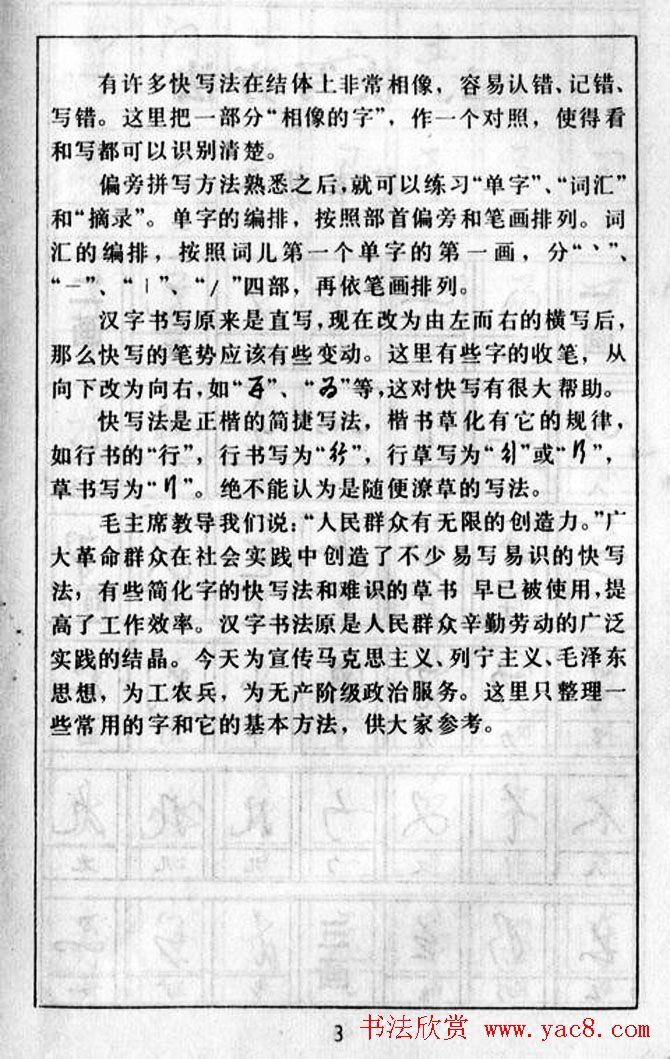 有许多快写法在结体上非常相像，容易认错、记错、
写错。这里把一部分“相像的字”，作一个对照，使得看
和写都可以识别清楚。
偏旁拼写方法熟悉之后，就可以练习“单字”、“词汇”
和“摘录”。单字的编排，按照部首偏旁和笔画排列。词
汇的编排，按照词儿第一个单字的第一画，分“丶”、
“一”、“丨”、“丿”四部，再依笔画排列。
汉字书写原来是直写，现在改为由左而右的横写后，
那么快写的笔势应该有些变动。这里有些字的收笔，从
向下改为向右，如“”、“”等，这对快写有很大帮助。
快写法是正楷的简捷写法，楷书草化有它的规律，
如行书的“行”，行书写为“行”，行草写为“”或“”，
草书写为“”。绝不能认为是随便潦草的写法。
毛主席教导我们说：“人民群众有无限的创造力。”广
大革命群众在社会实践中创造了不少易写易识的快写
法；有些简化字的快写法和难识的草书 早已被使用，提
高了工作效率。汉字书法原是人民群众辛勤劳动的广泛
实践的结晶。今天为宣传马克思主义、列宁主义、毛泽东
思想，为工农兵，为无产阶级政治服务。这里只整理一
些常用的字和它的基本方法，供大家参考。
3
书法欣赏 www.yac8.com